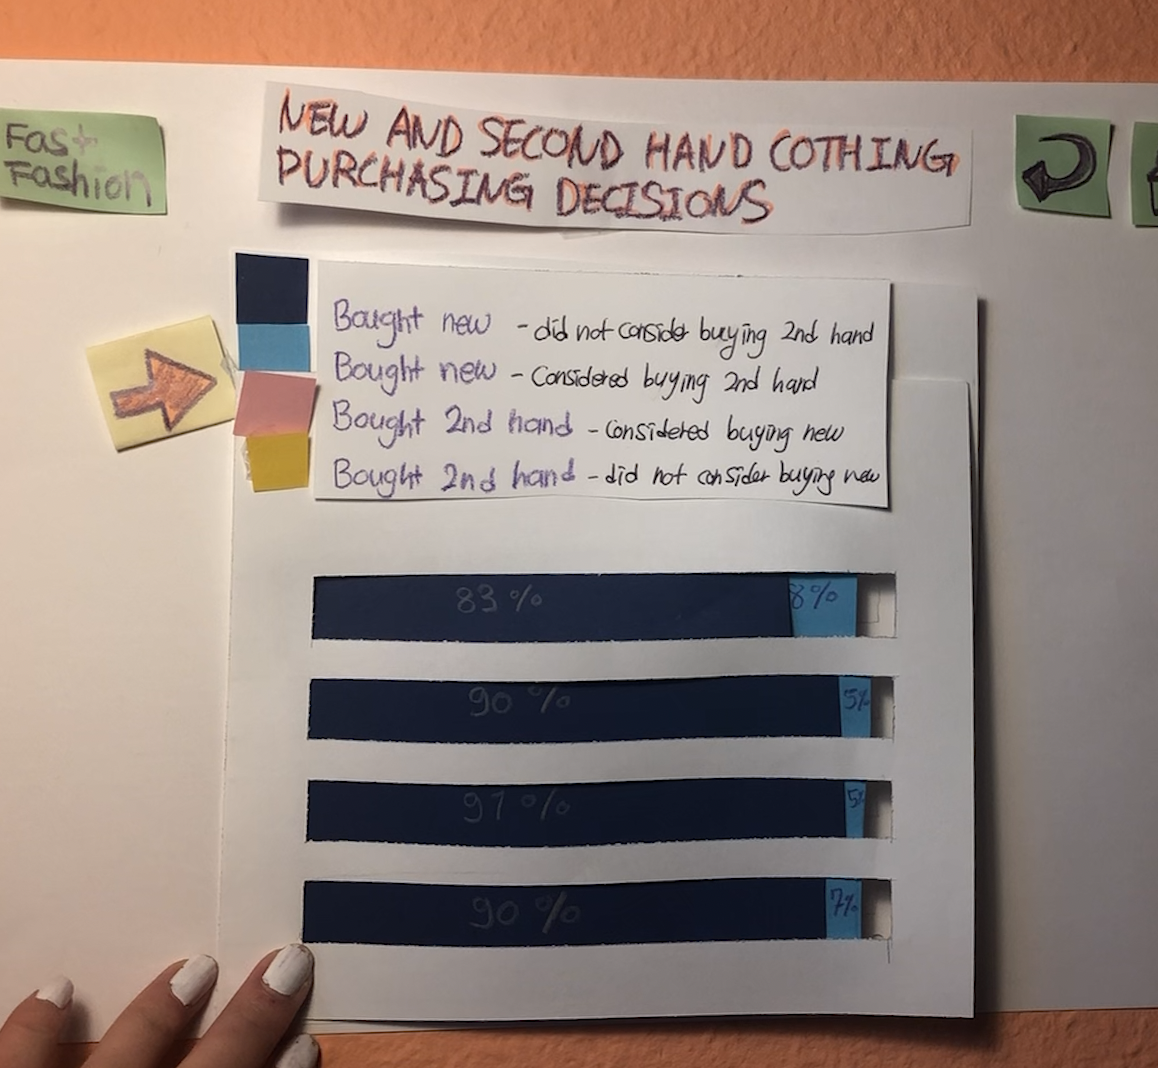 Fast
Fashion
NEW AND SECOND HAND COTHING
PURCHASING DECISIONS
Bought new - did not consider buying 2nd hand
Bought new - Considered buying 2nd hand
Bought 2nd hand - Considered buying new
Bought 2nd hand - did not consider buying new
83% 8%
90% 5%
91% 5%
90% 7%